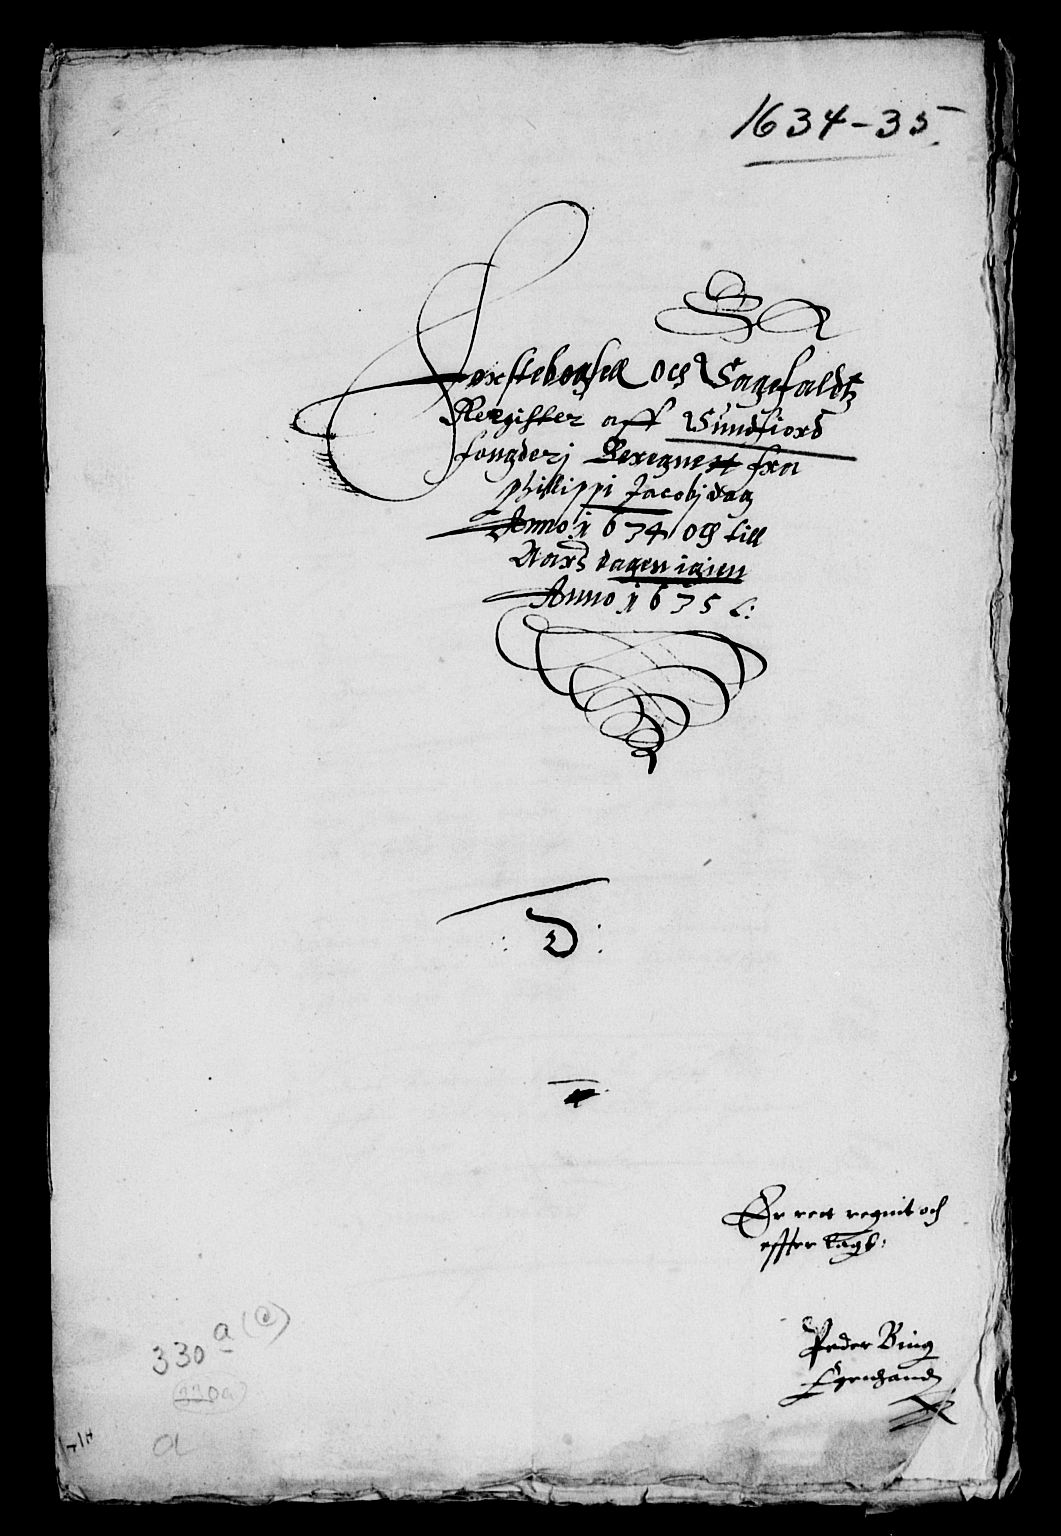 1634-35.
Førstebogsell och Sagefaldtz
Register aff Sundfiord
fougderj Beregnett fra
Phillippi Jacobj dag
Anno 1634 och till
Aars dagen igien
Anno 1635
:D:
Er rett regnit och
effter lagt:
Peder Bing
Egenhand
330 a (a)
(330a)
a